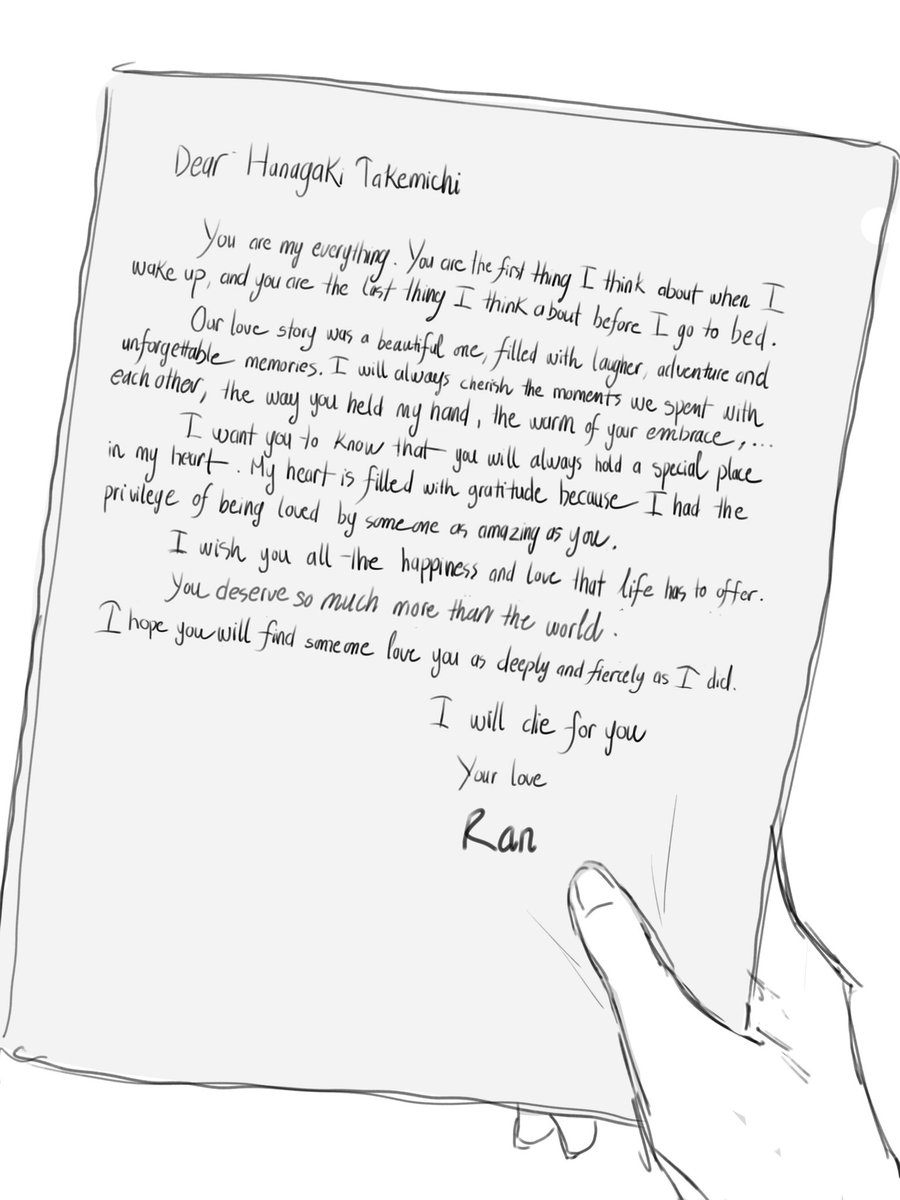 Dear Hanagaki Takemichi
You are my everything. You are the first thing I think about when I
wake up, and you are the last thing I think about before I go to bed.
Our love story was a beautiful one, filled with laugher, adventure and
unforgettable memories. I will always cherish the moments we spent with
each other, the way you held my hand, the warm of your embrace,...
I want you to know that you will always hold a special place
in my heart. My heart is filled with gratitude because I had the
privilege of being loved by someone as amazing as you.
I wish you all the happiness and love that life has to offer.
You deserve so much more than the world.
I hope you will find someone love you as deeply and fiercely as I did.
I will die for you
Your love
Ran